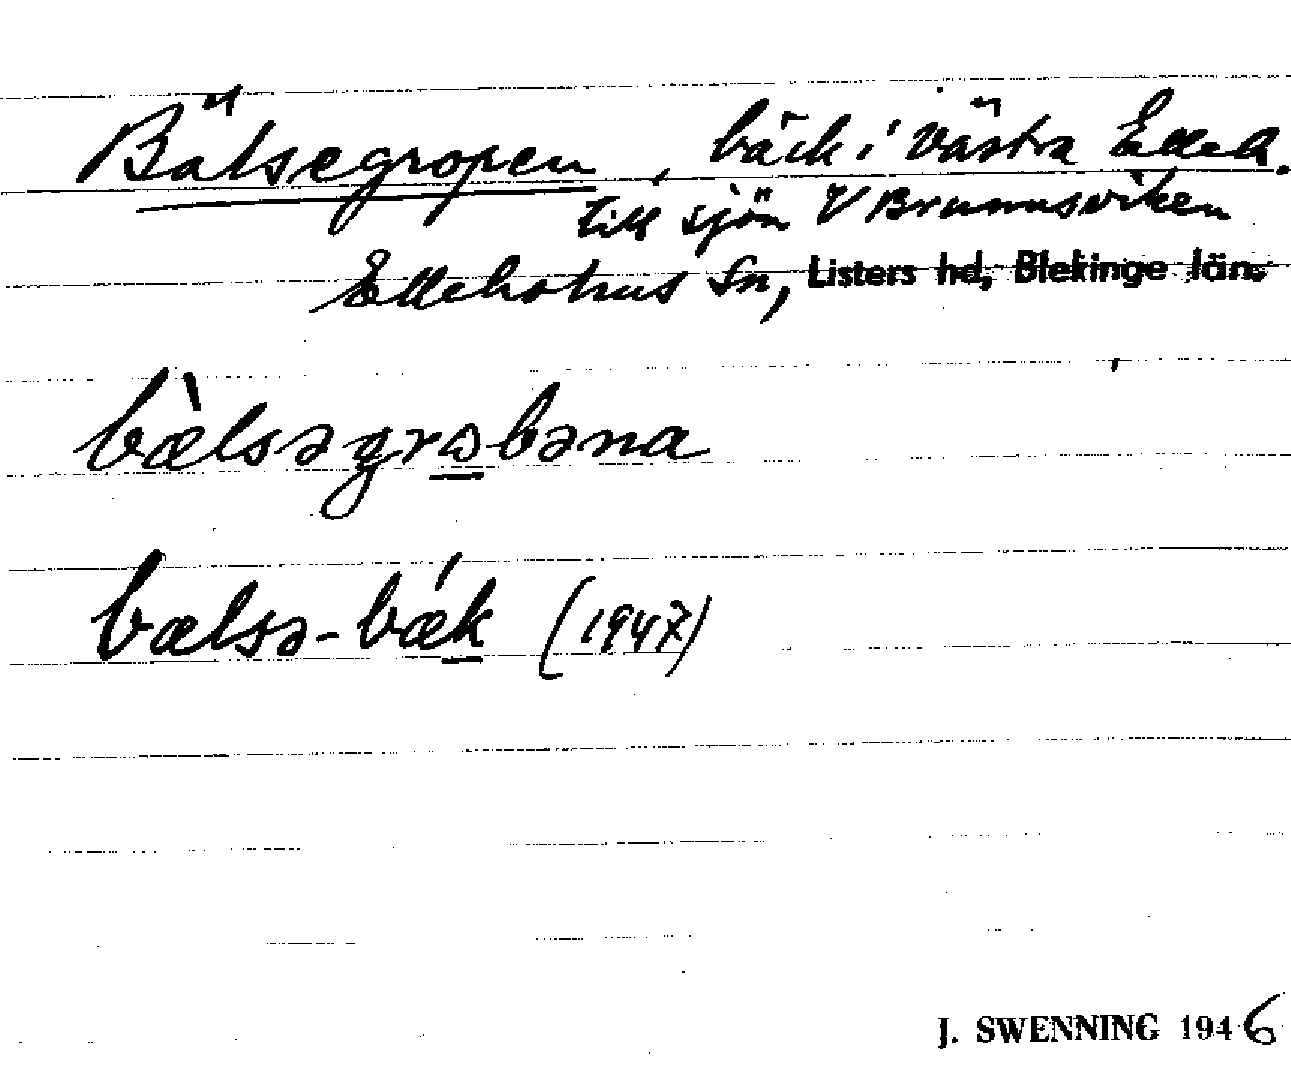 Bälsegropen, bäck i västra Elleh.
till sjön V Brunnsviken
Elleholms Sn, Listers hd, Blekinge län.
bæ̀lsəgrɷbəna
bælsə-bǽk (1947)
J. SWENNING 1946